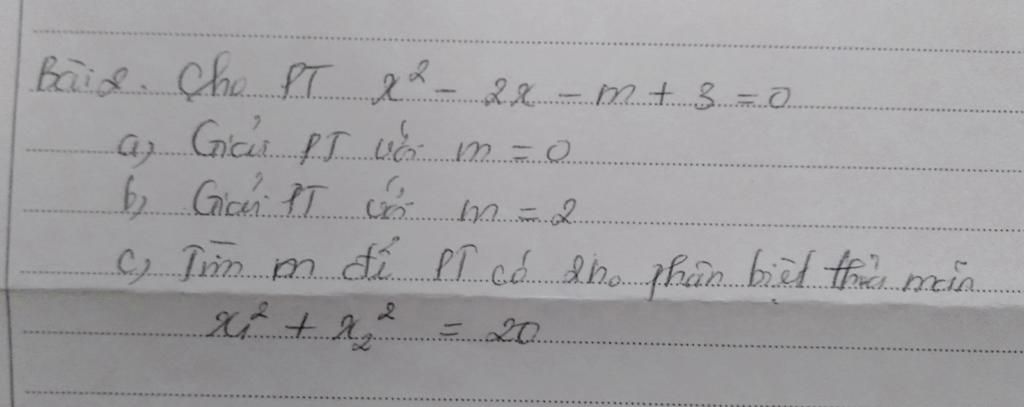 Bài 2. Cho PT x² - 2x - m + 3 = 0
a) Giải PT với m = 0
b) Giải PT với m = 2
c) Tìm m để PT có 2no phân biệt thỏa mãn
x₁² + x₂² = 20